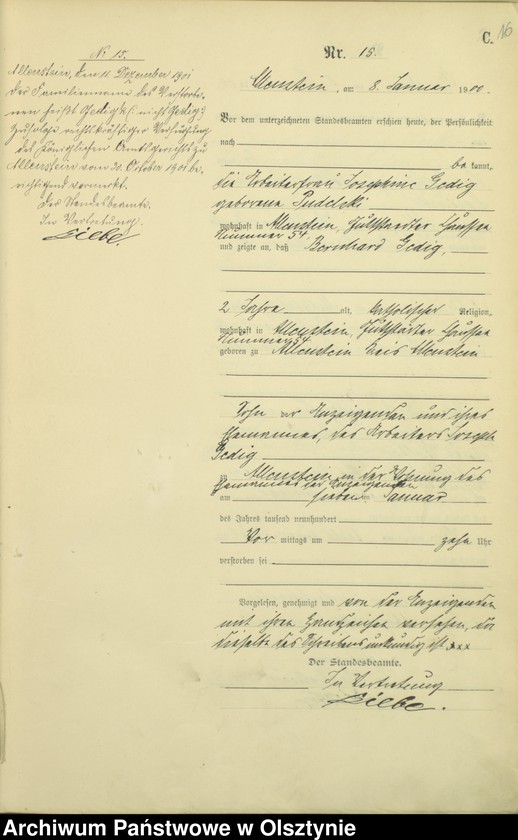 C. 16
Nr. 15.
Allenstein, am 8. Januar 1900.
Vor dem unterzeichneten Standesbeamten erschien heute, der Persönlichkeit
nach
be kannt,
die Arbeiterfrau Josephine Gedig
geborene
wohnhaft in Allenstein, Guttstädter Chaussee
Nummer 54
und zeigte an, daß Bernhard Gedig,
2 Jahre alt, katholischer Religion,
wohnhaft in Allenstein, Guttstädter Chaussee
Nummer 54
geboren zu Allenstein Kreis Allenstein
Sohn der Anzeigenden und ihres
Ehemannes, des Arbeiters Joseph
Gedig
zu Allenstein in der Wohnung des
Ehemannes der Anzeigenden
am sieben Januar
des Jahres tausend neunhundert
Vor mittags um zehn Uhr
verstorben sei
Vorgelesen, genehmigt und von der Anzeigenden
mit ihrem Handzeichen versehen, da
dieselbe des Schreibens unkundig ist. xxx
Der Standesbeamte.
In Vertretung
No 15.
Allenstein, den 11. Dezember 1901
Der Familienname des Verstorbe-
nen heißt (: nicht Gedig :)
zufolge rechtskräftiger Verfügung
des Königlichen Amtsgerichts zu
Allenstein vom October 1901 be-
richtigend vermerkt.
Der Standesbeamte.
In Vertretung.
Archiwum Państwowe w Olsztynie